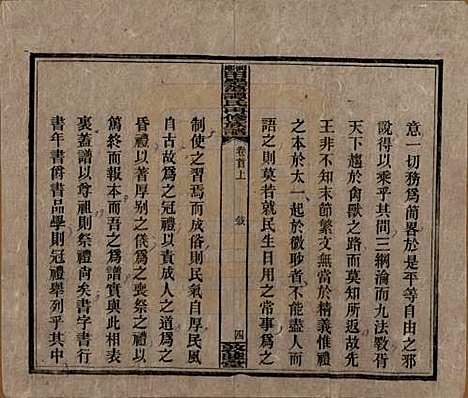 意一切務爲簡畧於是平等自由之邪
說得以乘乎其間三綱淪而九法斁胥
天下趨於禽獸之路而莫知所返故先
王非不知末節繁文無當於精義惟禮
之本於太一起於微眇者不能盡人而
語之則莫若就民生日用之常事爲之
氏再修族譜
卷首上
敘
四
制使之習焉而成俗則民氣自厚民風
自古故爲之冠禮以責成人之道爲之
昏禮以著厚别之儀爲之喪祭之禮以
篤終而報本而吾之爲譜實與此相表
裏蓋譜以尊祖則祭禮尙矣書字書行
年書書爵書品學則冠禮舉列乎其中